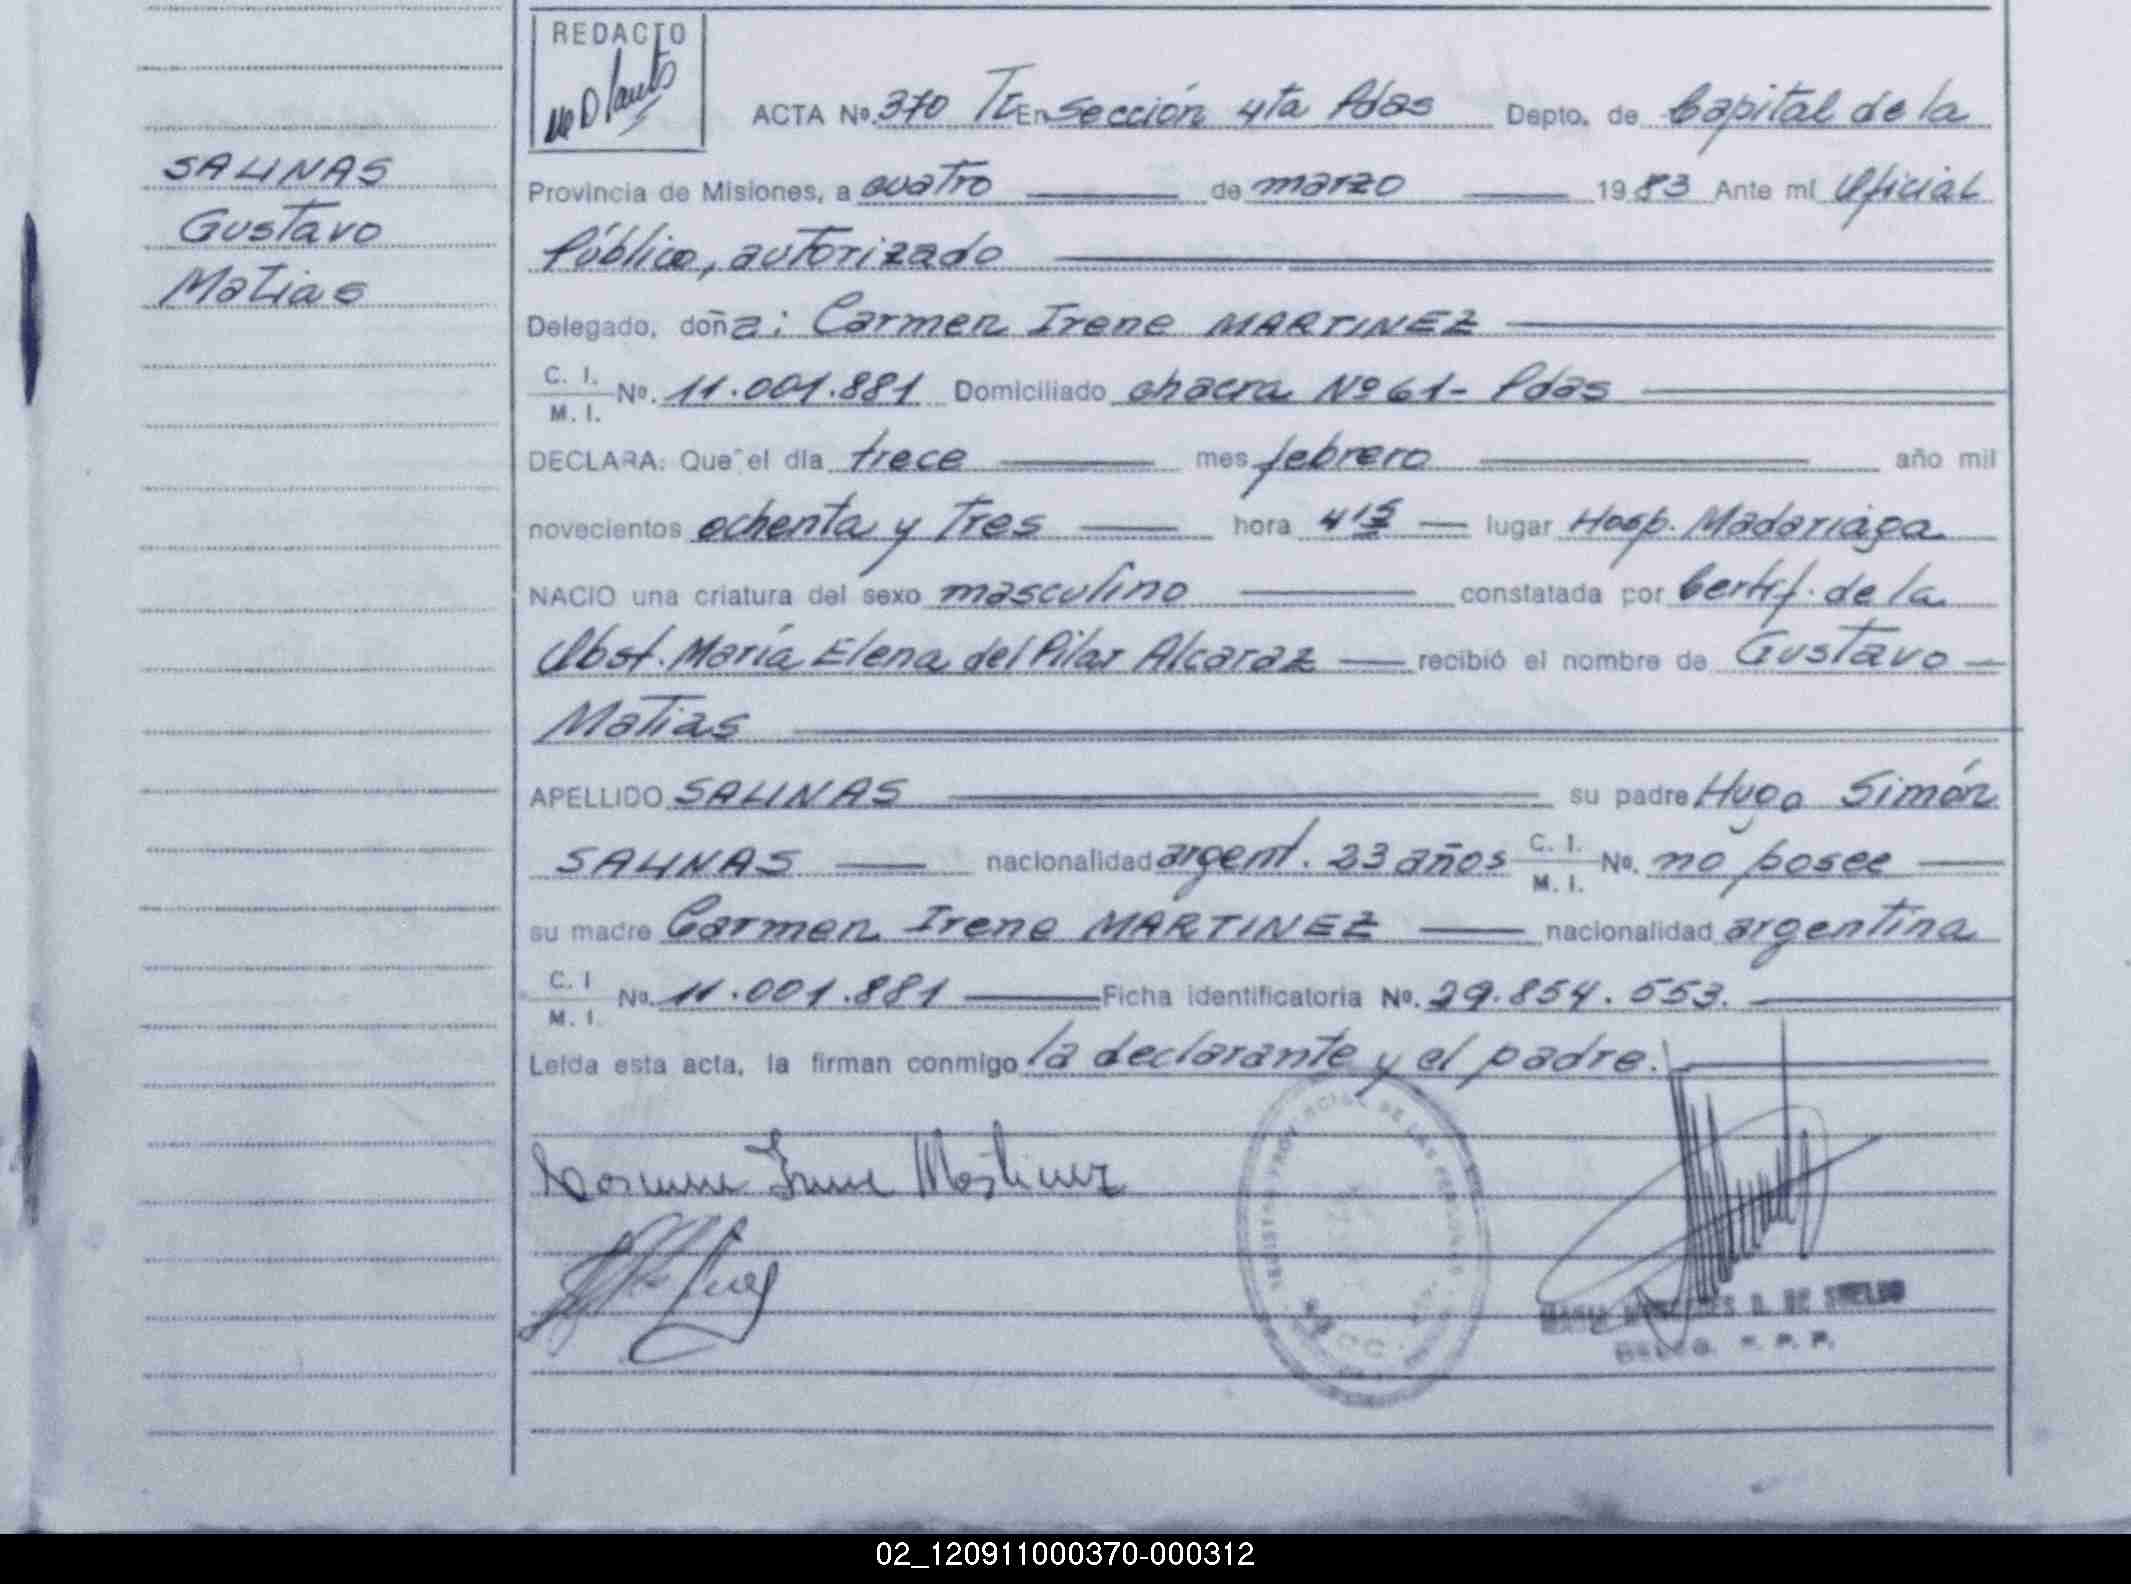 REDACTO
ACTA No. 370 TI En Sección 4ta Pdas Depto. de Capital de la
SALINAS
Gustavo
Matias
Provincia de Misiones, a cuatro de marzo 1983 Ante mí Oficial
Público, autorizado
Delegado, doña: Carmen Irene MARTINEZ
C. I.
M. I.
No. 11.001.881 Domiciliado chacra Nº 61- Pdas
DECLARA: Que el día trece mes febrero año mil
novecientos ochenta y tres hora 4 15 lugar Hosp. Madariaga
NACIO una criatura del sexo masculino constatada por Certif. de la
Obst. María Elena del Pilar Alcaraz recibió el nombre de Gustavo
Matias
APELLIDO SALINAS su padre Hugo Simón
SALINAS nacionalidad argent. 23 años C. I. M. I. No. no posee
su madre Carmen Irene MARTINEZ nacionalidad argentina
C. I
M. I.
No. 11.001.881 Ficha identificatoria No. 29.854.553.
Leída esta acta, la firman conmigo la declarante y el padre.
Carmen Irene Martinez
02_120911000370-000312